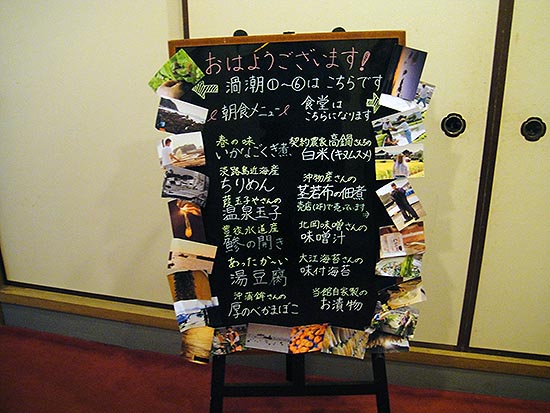 おはようございます!
渦潮①〜⑥は こちらです
朝食メニュー
食堂は
こちらになります
春の味
いかなごくぎ煮
淡路島近海産
ちりめん
温泉玉子
豊後水道産
鯵の開き
あったか〜い
湯豆腐
沖蒲鉾さんの
厚のべかまぼこ
契約農家 高鍋さんちの
白米(キヌムスメ)
沖物産さんの
茎若布の佃煮
北岡味噌さんの
味噌汁
大江海苔さんの
味付海苔
当館自家製の
お漬物